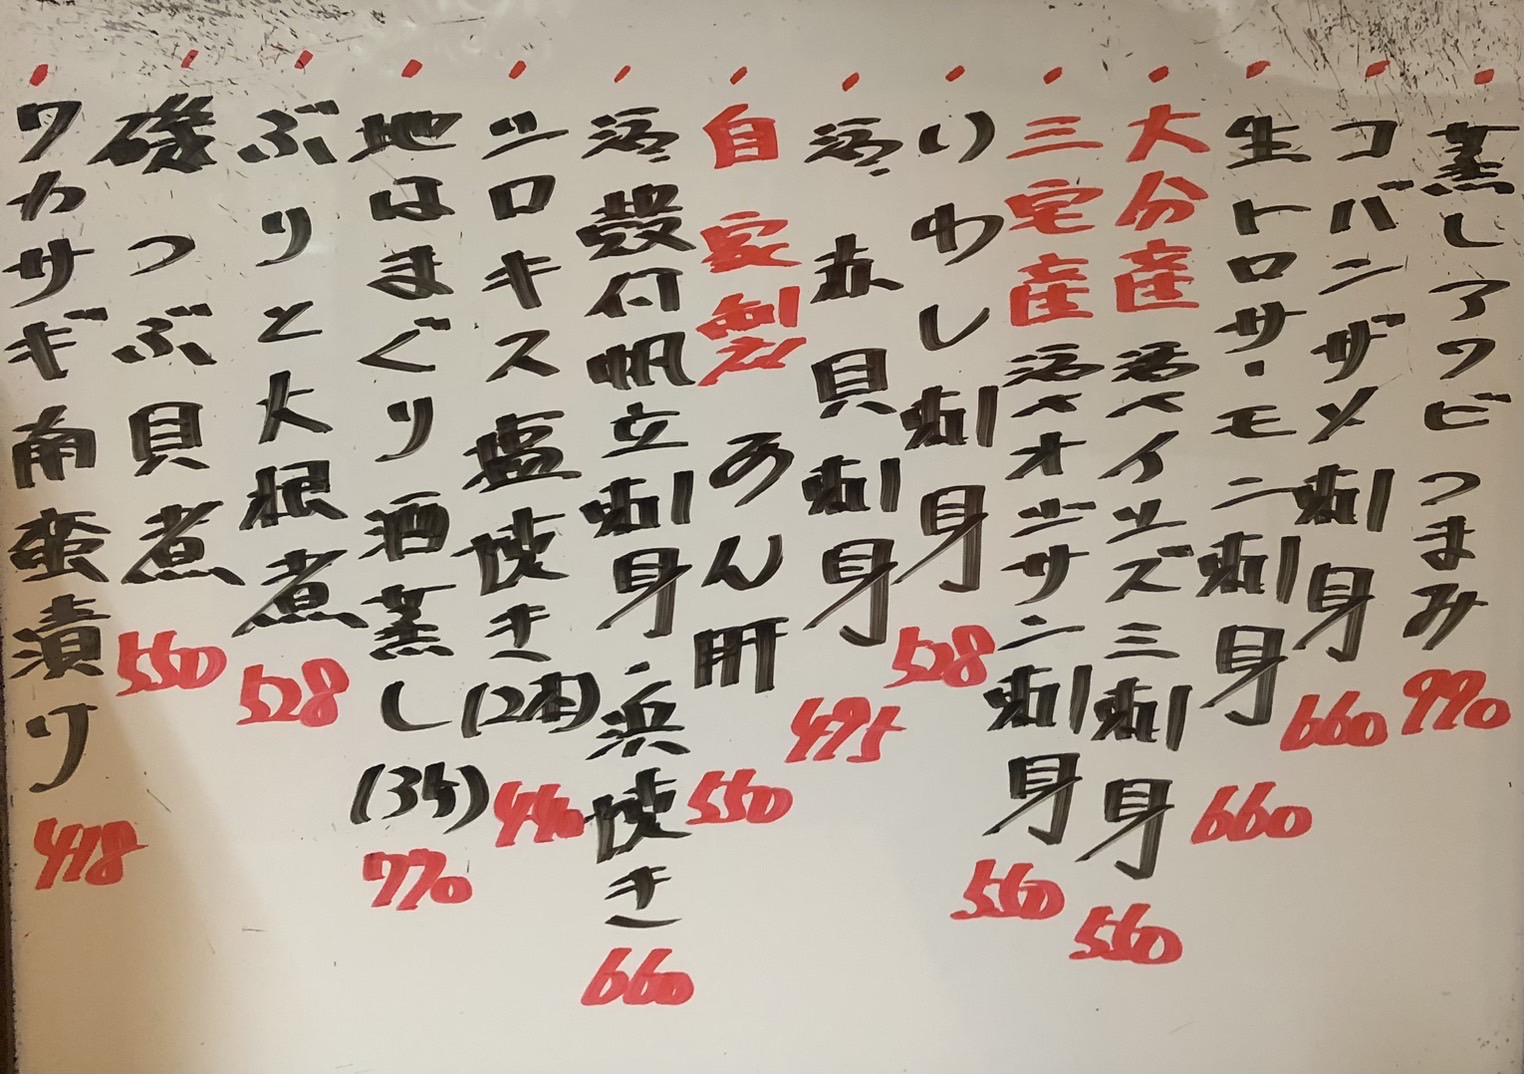 蒸しアワビつまみ 990
コバンザメ刺身 660
生トロサーモン刺身 660
大分産 活〆イサズミ刺身 560
三宅産 活〆オジサン刺身 560
いわし刺身 528
活赤貝刺身 495
自家製 あん肝 550
活殻付帆立刺身・浜焼き 660
シロキス塩焼き(2本) 440
地はまぐり酒蒸し(3ケ) 770
ぶりと大根煮 528
磯つぶ貝煮 550
ワカサギ南蛮漬け 418